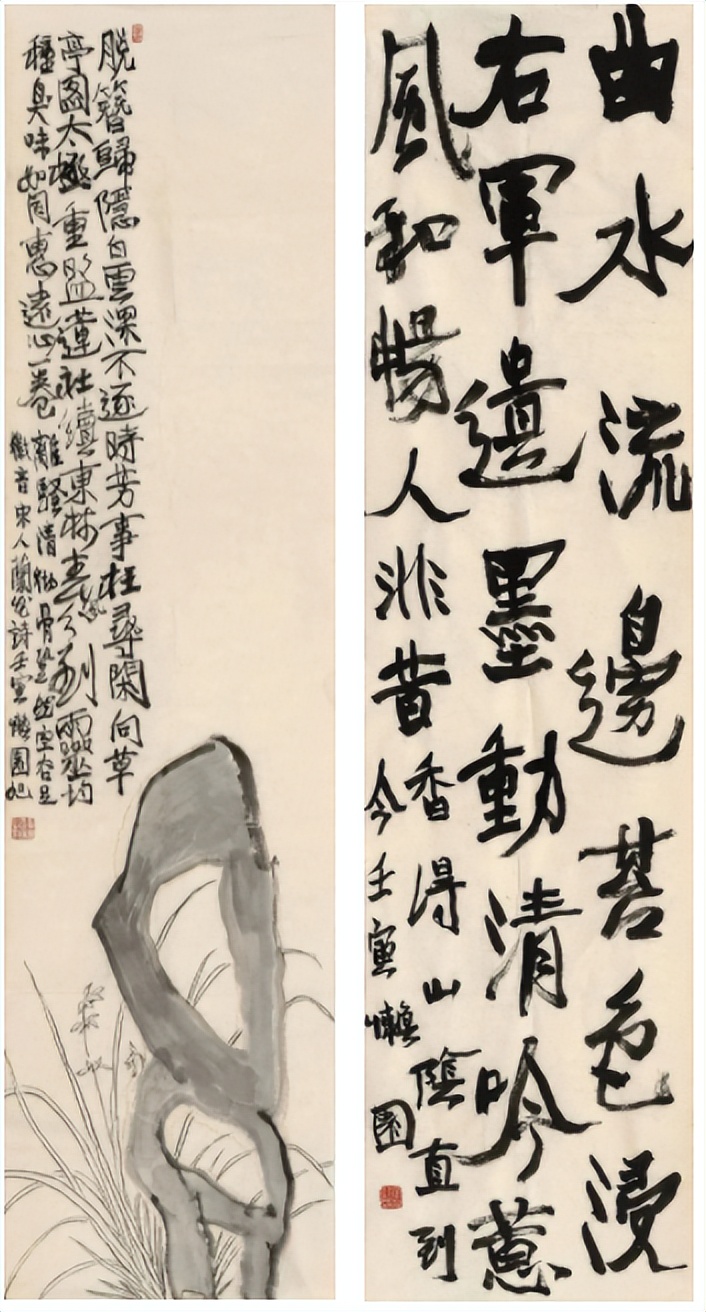 曲水流邊苔色浸
右軍遺墨動清吟蕙
風和暢人非昔
香得山陰直到
今壬寅懶園
脫簪歸隱白雲深不逐時芳事枉尋閑向草
亭圖太極重盟蓮社續東林春風分到靈均
種臭味如同惠遠心一卷
離騷清徹骨跫然空谷足
徽音宋人蘭花詩壬寅懶園旭